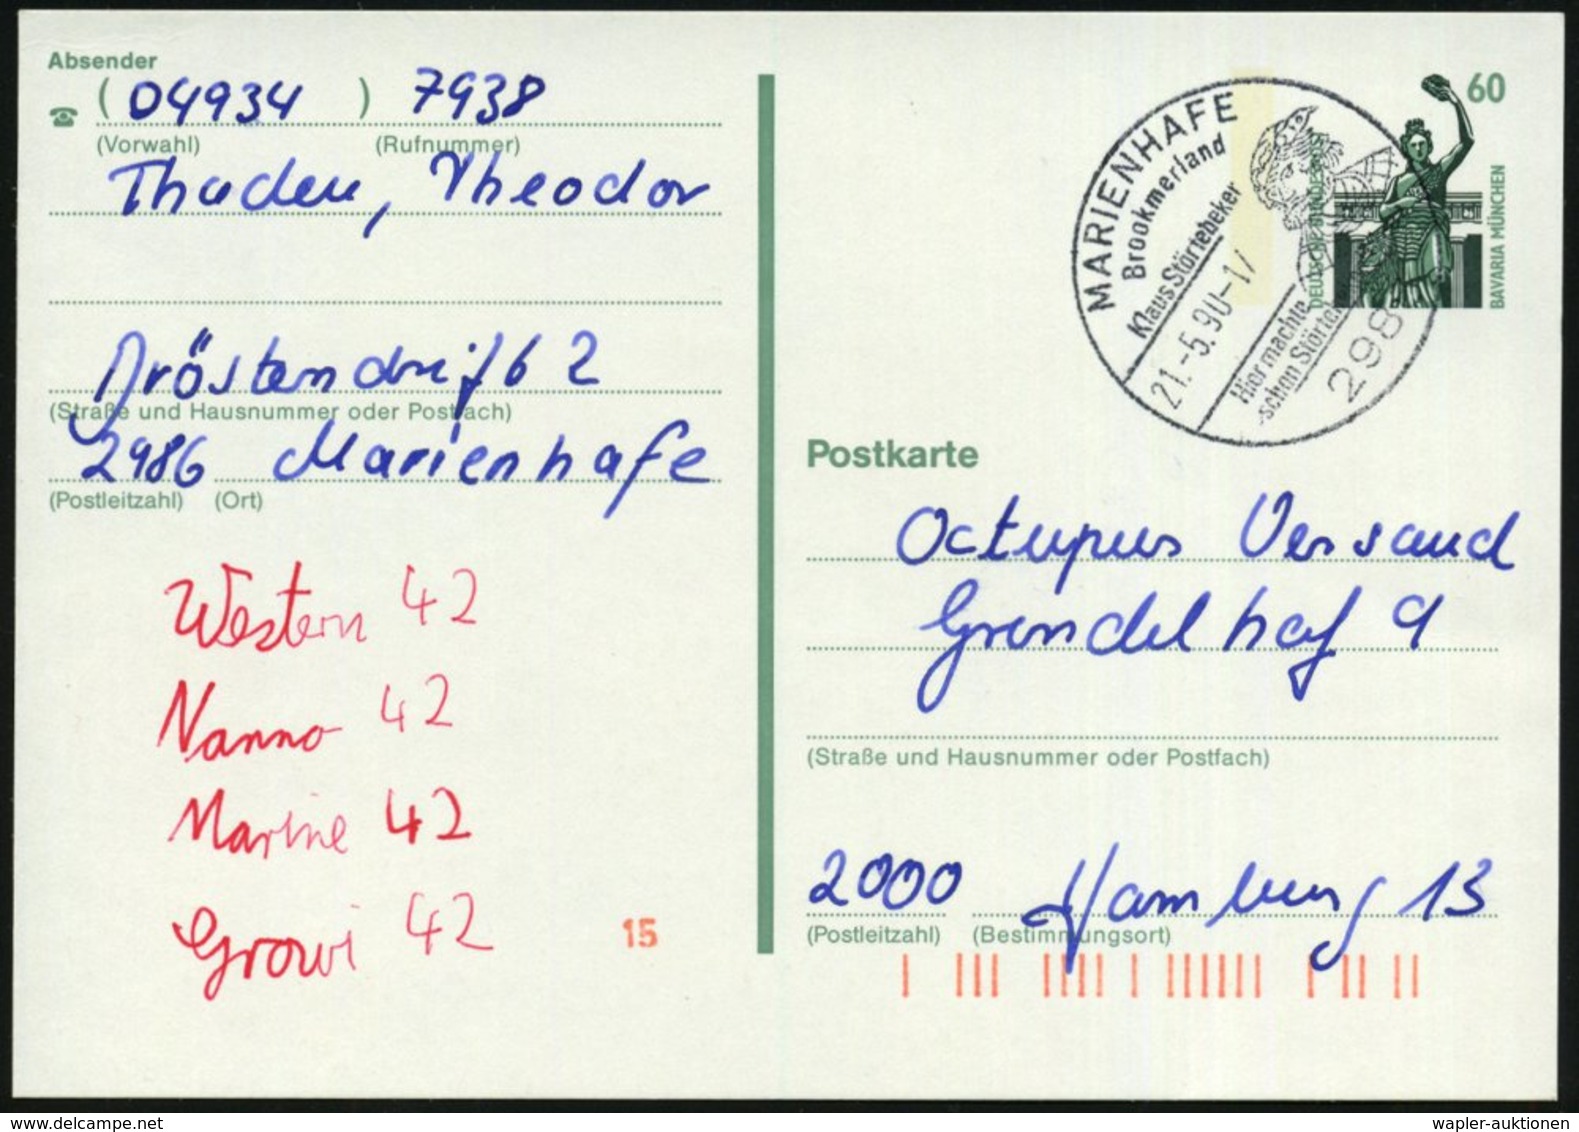 Absender
(04934) 7938
(Vorwahl) (Rufnummer)
Thaden, Theodor
(Straße und Hausnummer oder Postfach)
2986 Marienhafe
(Postleitzahl) (Ort)
Western 42
Nanno 42
Marine 42
Growi 42
15
MARIENHAFE
Brookmerland
Klaus Störtebeker
21.-5.90-17
Hier machte
schon Störte
298
60
DEUTSCHE BUNDESPOST
BAVARIA MÜNCHEN
Postkarte
Octupus Versand
Grendelhof 9
(Straße und Hausnummer oder Postfach)
2000 Hamburg 13
(Postleitzahl) (Bestimmungsort)
wapler-auktionen